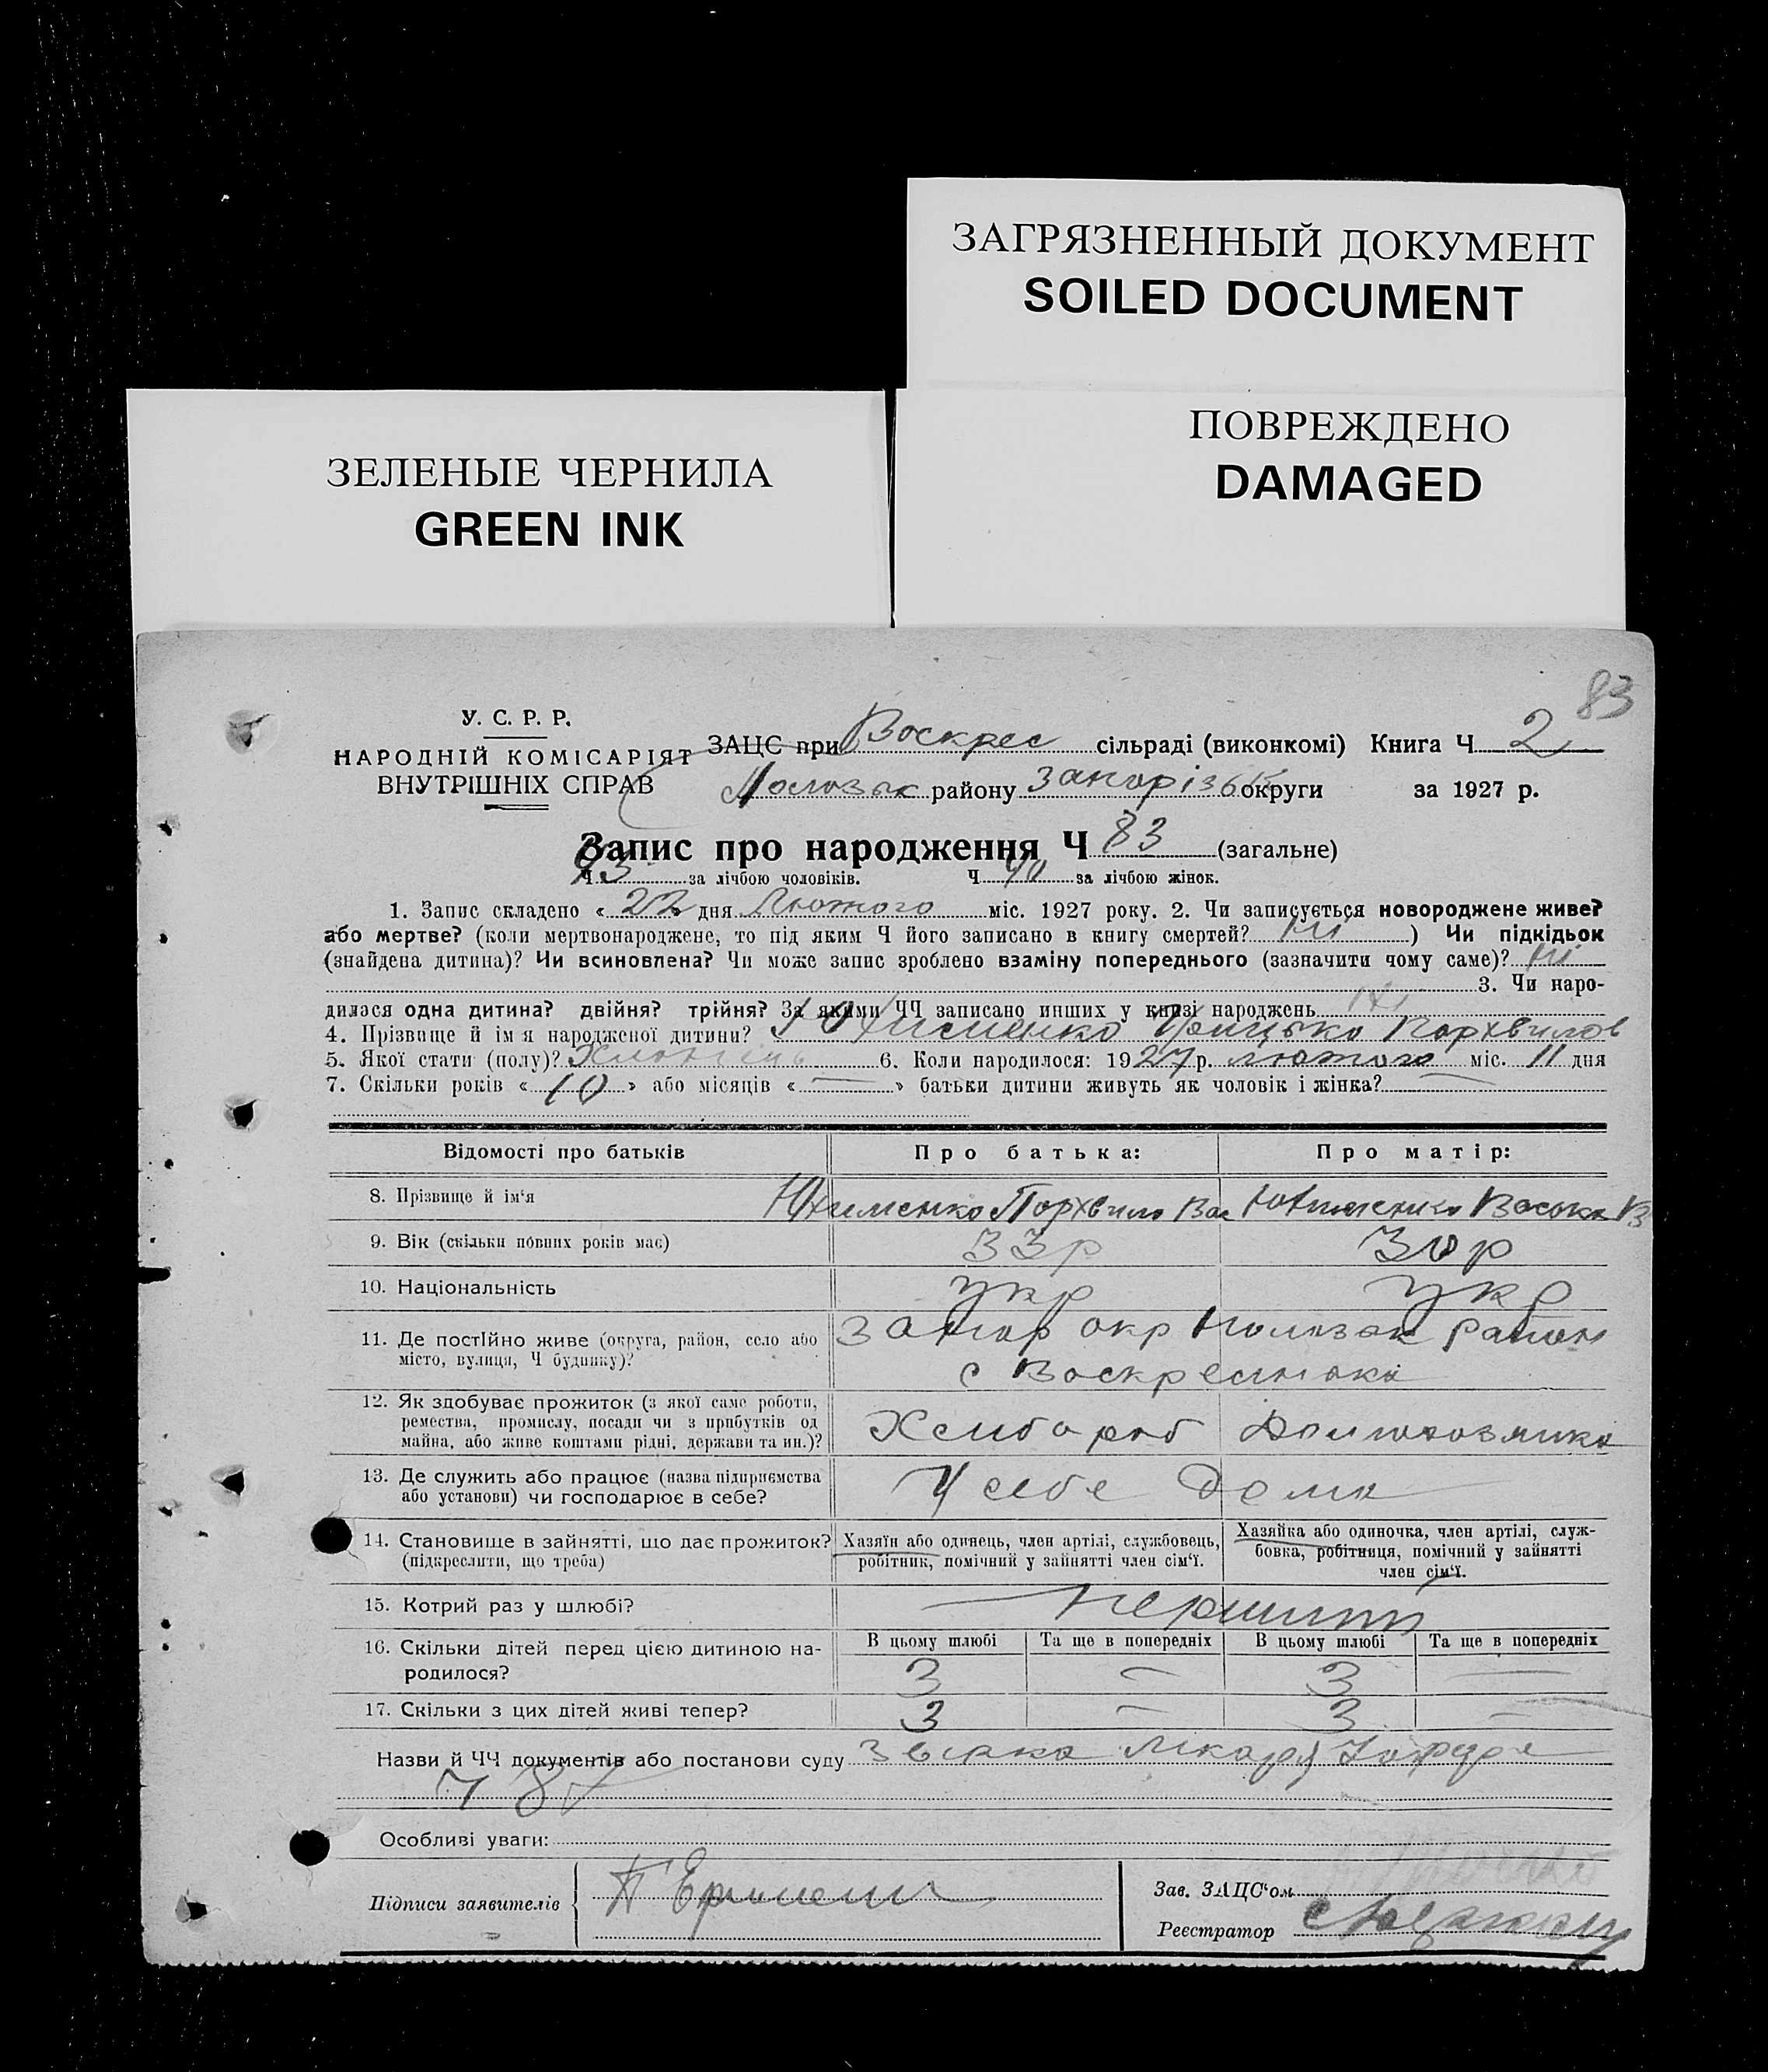 ЗАГРЯЗНЕННЫЙ ДОКУМЕНТ
SOILED DOCUMENT
ПОВРЕЖДЕНО
DAMAGED
ЗЕЛЕНЫЕ ЧЕРНИЛА
GREEN INK
83
У. С. Р. Р.
НАРОДНІЙ КОМІСАРІЯТ
ВНУТРІШНІХ СПРАВ
ЗАЦС при Воскрес сільраді (виконкомі) Книга Ч 2
району Запорізьк округи за 1927 р.
Запис про народження Ч 83 (загальне)
Ч 43 за лічбою чоловіків. Ч 40 за лічбою жінок.
1. Запис складено «22» дня Лютого міс. 1927 року. 2. Чи записується новороджене живе?
або мертве? (коли мертвонароджене, то під яким Ч його записано в книгу смертей? Ні ) Чи підкідьок
(знайдена дитина)? Чи всиновлена? Чи може запис зроблено взаміну попереднього (зазначити чому саме)? Ні
3. Чи наро-
дилася одна дитина? двійня? трійня? За якими ЧЧ записано инших у книзі народжень Ні
4. Прізвище й ім'я народженої дитини? Юхименко Грицько Порхвилов
5. Якої стати (полу)? Хлопчик 6. Коли народилося: 1927 р. лютого міс. 11 дня
7. Скільки років «10» або місяців «—» батьки дитини живуть як чоловік і жінка? —
Відомості про батьків Про батька: Про матір:
8. Прізвище й ім'я Юхименко Порхвило Вас Юхименко Васька В
9. Вік (скільки повних років має) 33р 30р
10. Національність укр укр
11. Де постІйно живе (округа, район, село або Запор окр район
місто, вулиця, Ч будинку)? с Воскресенька
12. Як здобуває прожиток (з якої саме роботи,
ремества, промислу, посади чи з прибутків од
майна, або живе коштами рідні, держави та ин.)? Хлибороб Домохозяйка
13. Де служить або працює (назва підприємства
або установи) чи господарює в себе? У себе дома
14. Становище в зайнятті, що дає прожиток?
(підкреслити, що треба)
Хазяїн або одинець, член артілі, службовець,
робітник, помічний у зайнятті член сім'ї.
Хазяйка або одиночка, член артілі, служ-
бовка, робітниця, помічний у зайнятті
член сім'ї.
15. Котрий раз у шлюбі? Першит
16. Скільки дітей перед цією дитиною на-
родилося?
В цьому шлюбі Та ще в попередніх В цьому шлюбі Та ще в попередніх
3 — 3 —
17. Скільки з цих дітей живі тепер? 3 — 3 —
Назви й ЧЧ документів або постанови суду Звістка лікаря
Особливі уваги:
Підписи заявителів
Зав. ЗАЦС'ом
Реєстратор